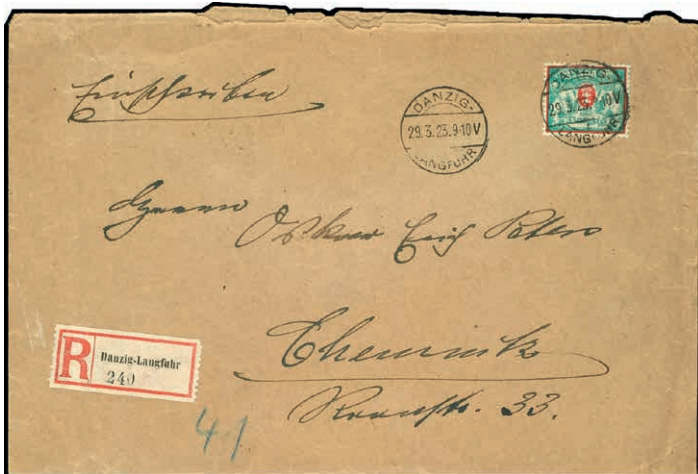 Einschreiben
DANZIG-
29.3.23.9-10V
LANGFUHR
DANZIG-
29.3.23.9-10V
LANGFUHR
Herrn
Oskar Erich Peters
Chemnitz
33.
R
Danzig-Langfuhr
240